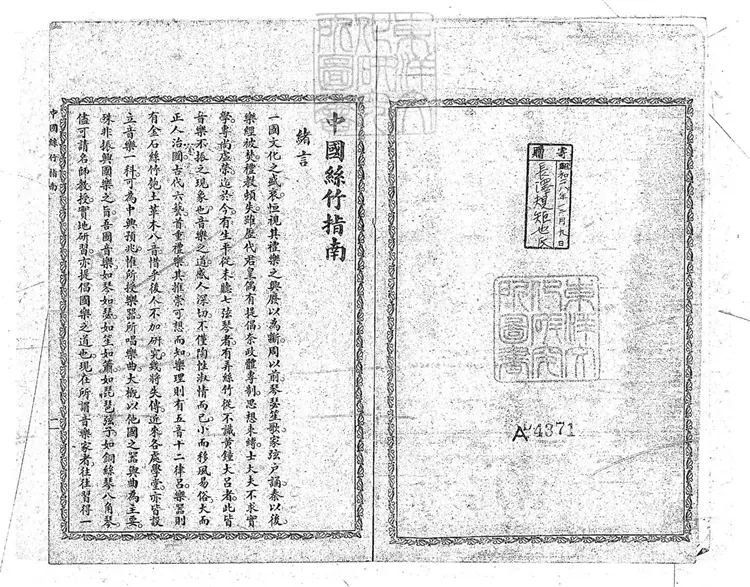 寄贈
昭和二八年一二月九日
長澤規矩也氏
東洋文
化研究
所圖書
A 4371
中國絲竹指南
緒言
一國文化之盛衰恒視其禮樂之興廢以為斷周以前琴瑟笙歌家弦户誦秦以後
樂經被焚禮教頻失雖歷代君皇偶有提倡奈政體專制思想束縛士大夫不求實
學專尚虛榮迄於今有生平從未聽七弦琴者有弄絲竹從不識黃鐘大呂者此皆
音樂不振之現象也音樂之道感人深切不僅陶性淑情而已小而移風易俗大而
正人治國古代六藝首重禮樂其推崇可想而知樂理則有五音十二律呂樂器則
有金石絲竹匏土革木八音惜乎後人不加研究幾將失傳近來各處學堂亦皆設
立音樂一科可為中興預兆惟所授樂器所唱樂曲大概以他國之器與曲為主要
殊非振興國樂之旨吾國音樂如琴如瑟如笙如簫如琵琶弦子如銅絲琴八角琴
儘可請名師教授實地研習亦提倡國樂之道也現在所謂音樂家者往往習得一
中國絲竹指南
一
東洋文
化研究
所圖書